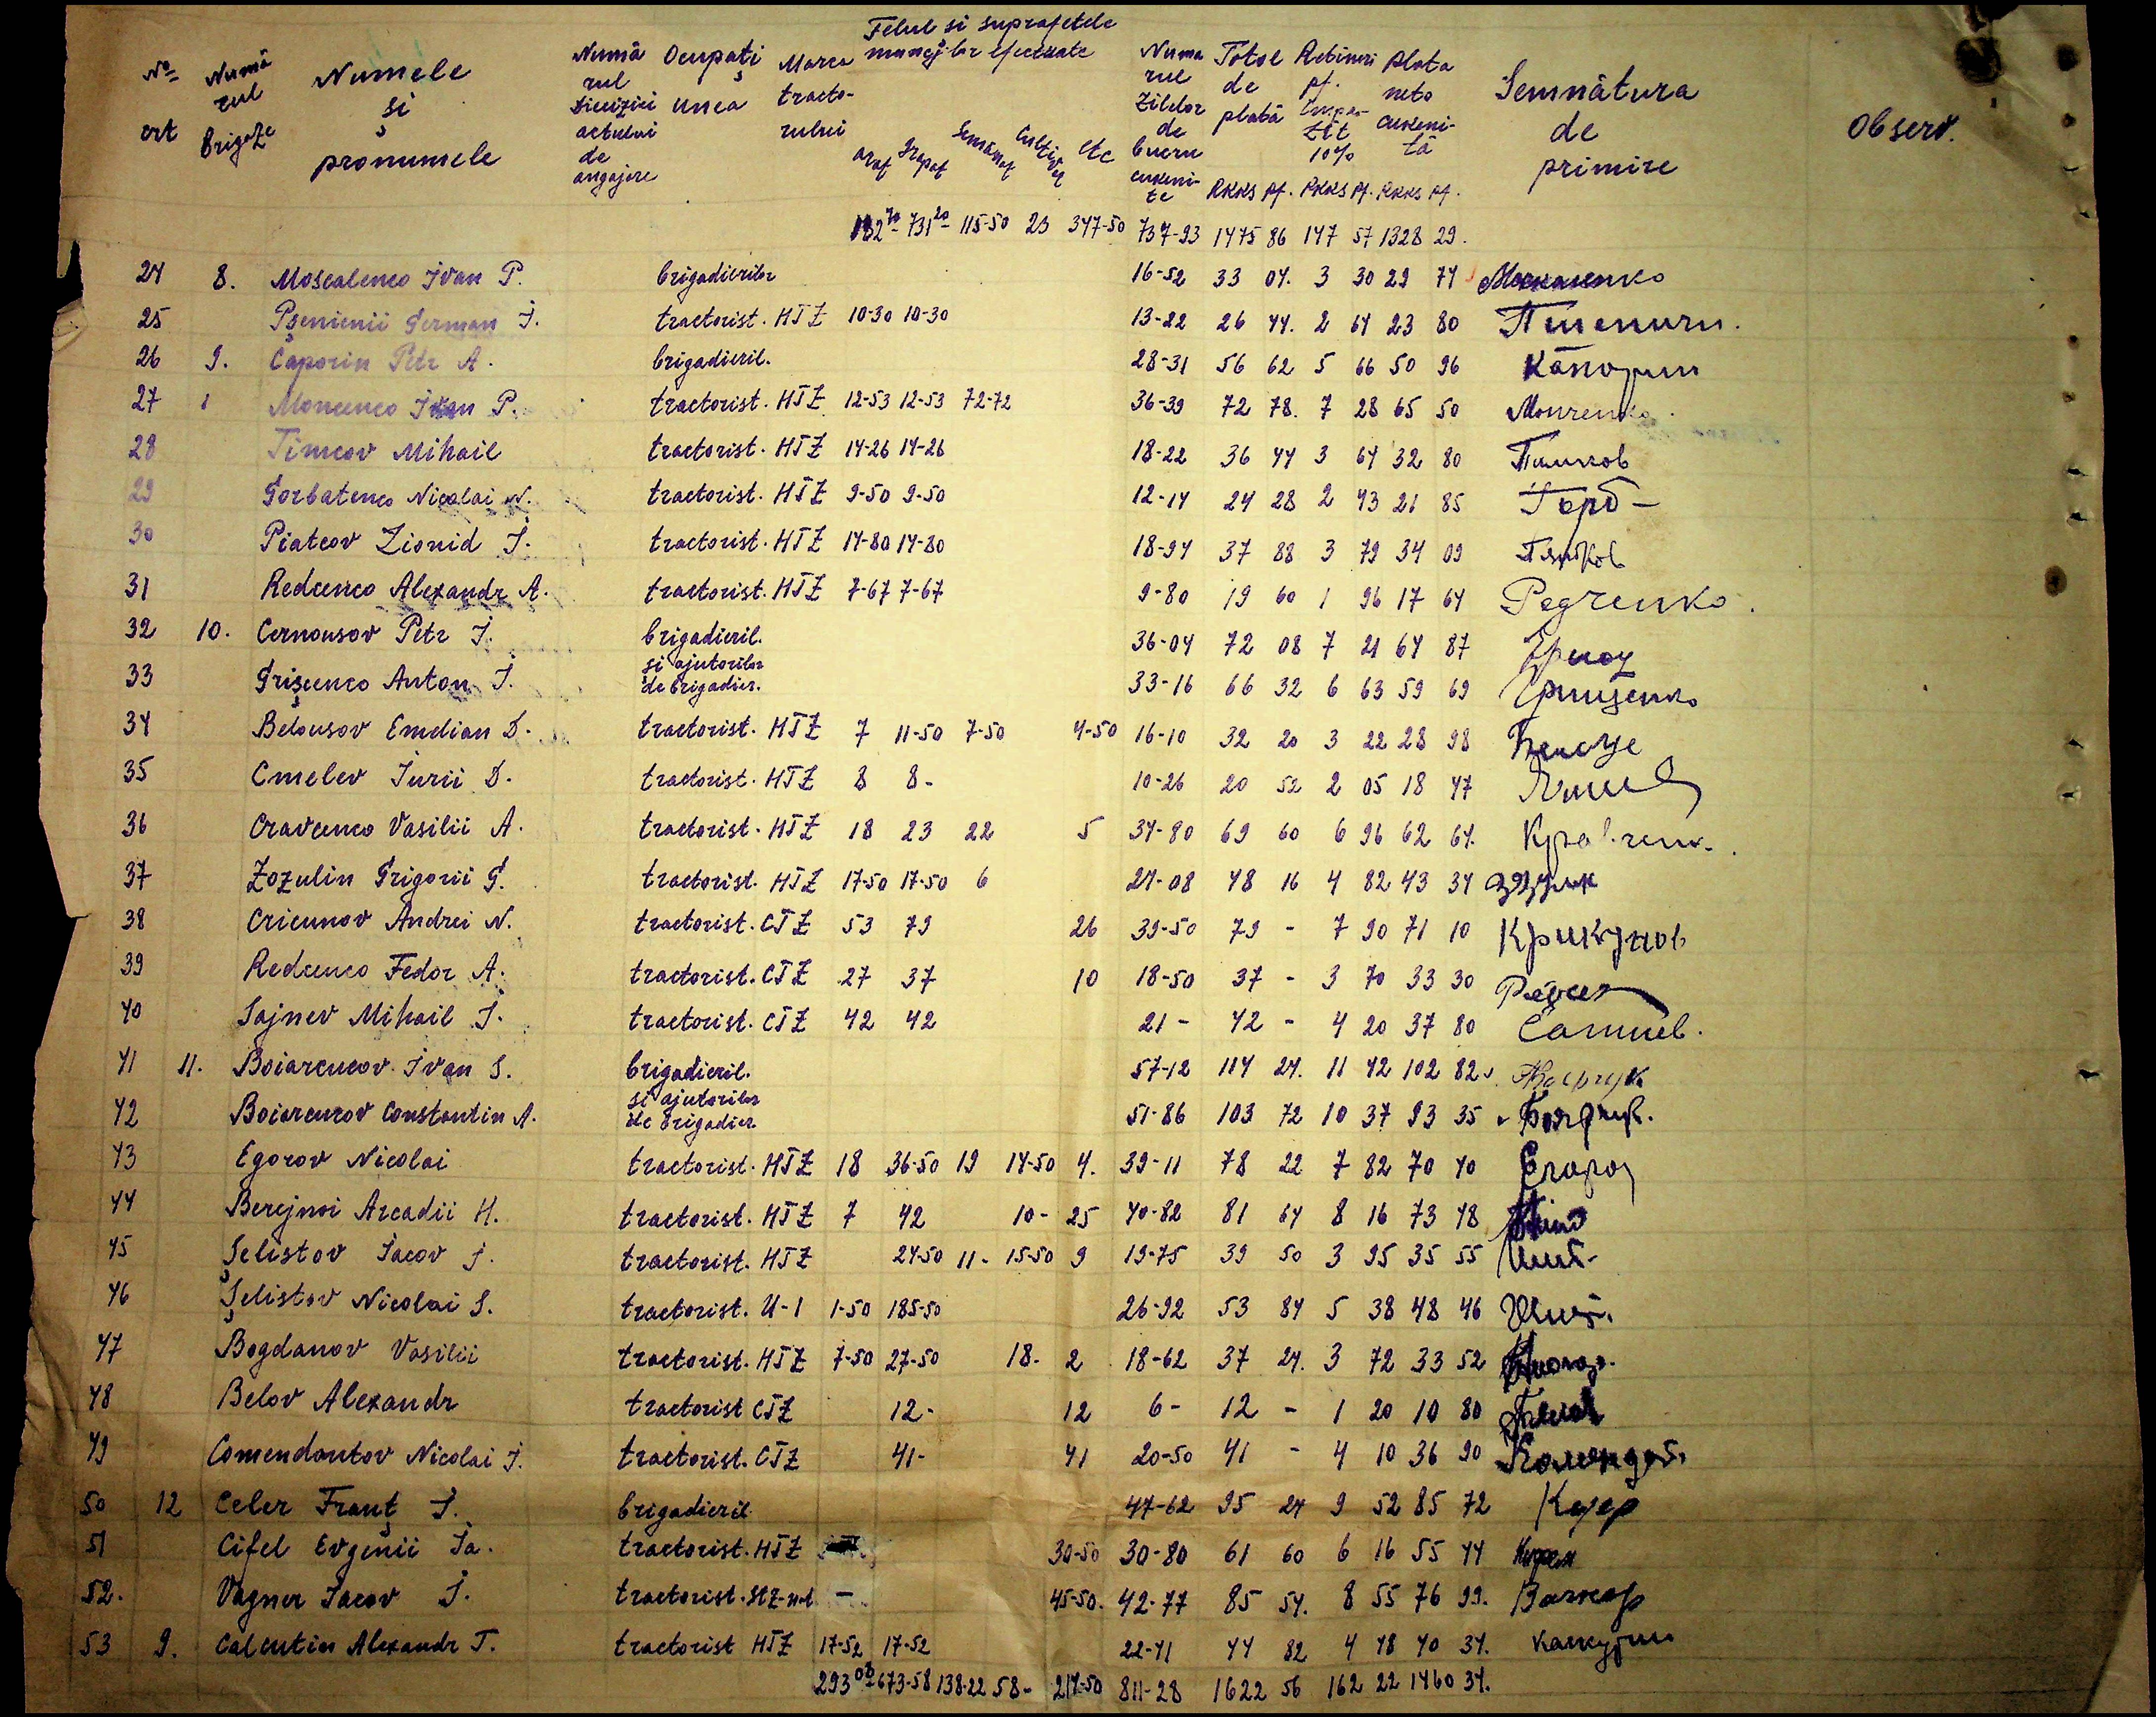 Felul si suprafetele
muncilor efectuate
No crt
Numărul brigăzi
Numele și pronumele
Numărul de angajare
Ocupațiunea
Marca tractorului
arat grapat semănat cultivat etc
Numarul zilelor de lucru cuvenite
Total de plată RKKS pf.
Retineri pt. impozit 10% RKKS pf.
Plata neto cuvenită RKKS pf.
Semnătura de primire
Observ.
182 70 731 20 115-50 23 347-50 737-93 1475 86 147 57 1328 29.
24 8. Moscalenco Ivan P. brigadierilor 16-52 33 04. 3 30 29 74
25 Pșenicnii German I. tractorist. HTZ 10-30 10-30 13-22 26 44. 2 64 23 80
26 9. Caporin Petr A. brigadieril. 28-31 56 62 5 66 50 96 Капорин
27 Moncenco Ivan P. tractorist. HTZ 12-53 12-53 72-72 36-39 72 78. 7 28 65 50 Монченко
28 Timcov Mihail tractorist. HTZ 14-26 14-26 18-22 36 44 3 64 32 80 Тимков
29 Gorbatenco Nicolai N. tractorist. HTZ 9-50 9-50 12-14 24 28 2 43 21 85 Горб-
30 Piatcov Lionid I. tractorist. HTZ 14-80 14-80 18-94 37 88 3 79 34 09 Пятков
31 Redcenco Alexandr A. tractorist. HTZ 7-67 7-67 9-80 19 60 1 96 17 64 Редченко.
32 10. Cernousov Petr I. brigadieril. 36-04 72 08 7 21 64 87
si ajutorilor
33 Grișcenco Anton I. de brigadier. 33-16 66 32 6 63 59 69 Грищенко
34 Belousov Emelian D. tractorist. HTZ 7 11-50 7-50 4-50 16-10 32 20 3 22 28 98
35 Cmelev Iurii D. tractorist. HTZ 8 8- 10-26 20 52 2 05 18 47
36 Cravcenco Vasilii A. tractorist. HTZ 18 23 22 5 34-80 69 60 6 96 62 64.
37 Zozulin Grigorii G. tractorist. HTZ 17-50 17-50 6 24-08 48 16 4 82 43 34
38 Cricunov Andrei N. tractorist. CTZ 53 79 26 39-50 79 - 7 90 71 10 Крикунов
39 Redcenco Fedor A. tractorist. CTZ 27 37 10 18-50 37 - 3 70 33 30
40 Sajnev Mihail I. tractorist. CTZ 42 42 21- 42 - 4 20 37 80
41 11. Boiarcucov Ivan S. brigadieril. 57-12 114 24. 11 42 102 82
si ajutorilor
42 Boiarcucov Constantin A. de brigadier 51-86 103 72 10 37 93 35
43 Egorov Nicolai tractorist. HTZ 18 36-50 19 14-50 4. 39-11 78 22 7 82 70 40 Егоров
44 Berejnoi Arcadii H. tractorist. HTZ 7 42 10- 25 40-82 81 64 8 16 73 48
45 Șelistov Iacov I. tractorist. HTZ 24-50 11- 15-50 9 19-75 39 50 3 95 35 55
46 Șelistov Nicolai S. tractorist. U-1 1-50 185-50 26-92 53 84 5 38 48 46
47 Bogdanov Vasilii tractorist. HTZ 7-50 27-50 18- 2 18-62 37 24. 3 72 33 52
48 Belov Alexandr tractorist CTZ 12- 12 6- 12 - 1 20 10 80
49 Comendantov Nicolai I. tractorist. CTZ 41- 41 20-50 41 - 4 10 36 90
50 12 Celer Franț I. brigadieril 47-62 95 24 9 52 85 72 Келер
51 Cifel Evgenii Ia. tractorist. HTZ 30-50 30-80 61 60 6 16 55 44
52. Vagner Iacov I. tractorist. StZ-nat - 45-50. 42-77 85 54. 8 55 76 99. Вагнер
53 9. Calcutin Alexandr T. tractorist HTZ 17-52 17-52 22-41 44 82 4 48 40 34.
293 08 673-58 138-22 58- 214-50 811-28 1622 56 162 22 1460 34.